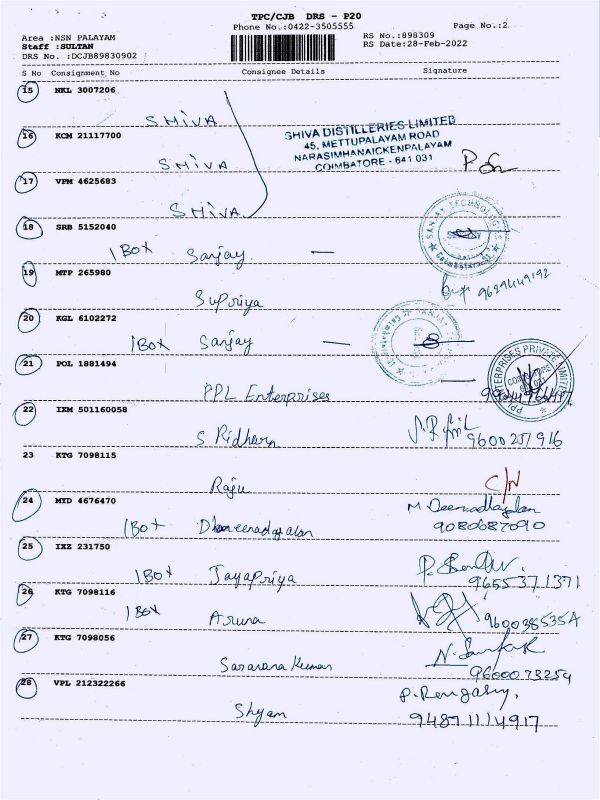 TPC/CJB DRS - P20
Phone No.:0422-3505555 Page No.:2
Area :NSN PALAYAM RS No.:898309
Staff :SULTAN RS Date:28-Feb-2022
DRS No. :DCJB89830902
S No Consignment No Consignee Details Signature
15 NKL 3007206
SHIVA
16 KCM 21117700
SHIVA DISTILLERIES LIMITED
45, METTUPALAYAM ROAD
NARASIMHANAICKENPALAYAM
COIMBATORE - 641 031
SHIVA
17 VPM 4625683
SHIVA
18 SRB 5152040
SANJAY TECHNOLOGIES
1 Box Sanjay
19 MTP 265980
Supriya 9629449192
20 KGL 6102272
1 Box Sanjay
21 POL 1881494
PPL ENTERPRISES PRIVATE LIMITED
PPL Enterprises
22 IXM 501160058
S Ridhern 9600251916
23 KTG 7098115
Raju C/N
24 MYD 4676470
M. Deenadhayalan
1 Box Dheenadayalan 9080687090
25 IXZ 231750
1 Box Jayapriya 9655371371
26 KTG 7098116
1 Box Aruna 9600385354
27 KTG 7098056
Saravana Kumar 9600073254
28 VPL 212322266
P. Rengasamy
Shyam 94871114917